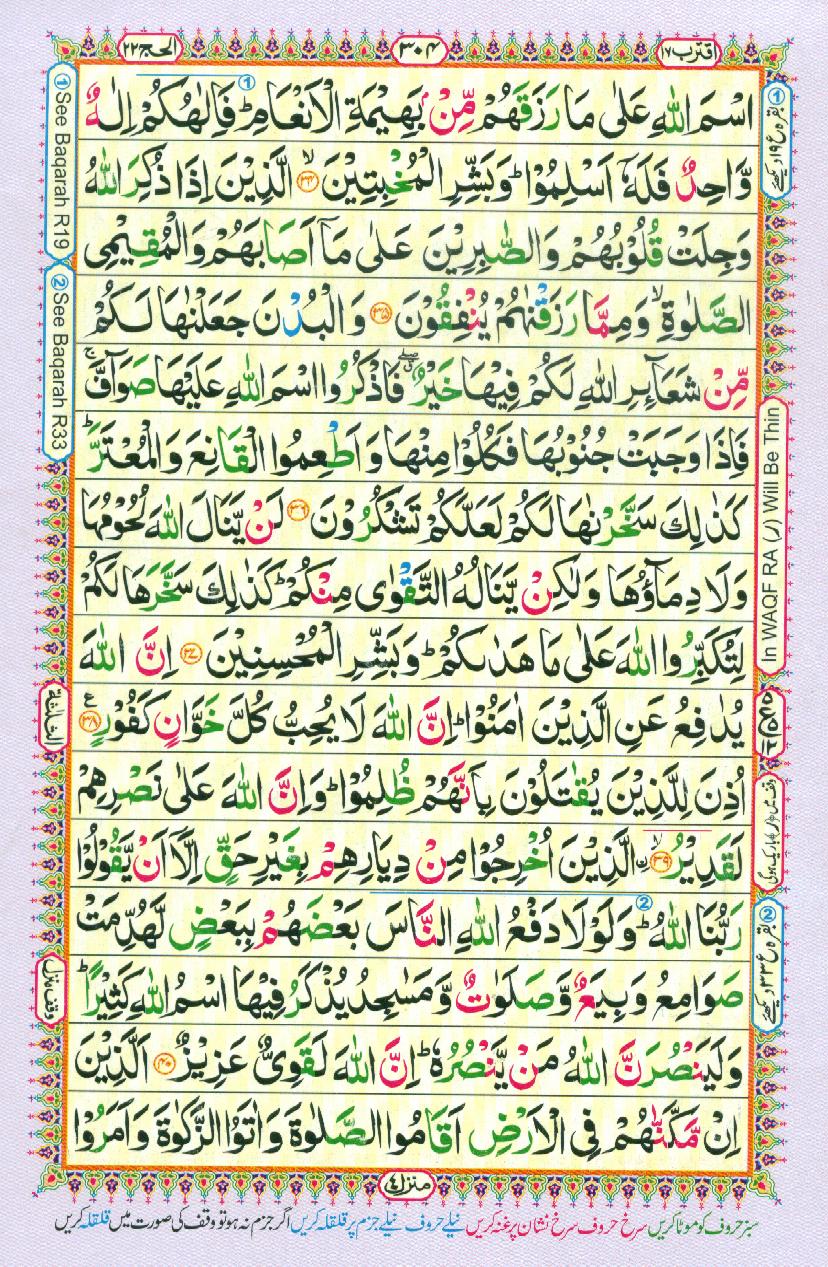 اقترب ١٧
٣٠٤
الحج ٢٢
اسْمَ اللّٰهِ عَلٰى مَا رَزَقَهُمْ مِّنْۢ بَهِيْمَةِ الْاَنْعَامِ ؕ فَاِلٰهُكُمْ اِلٰهٌ
وَّاحِدٌ فَلَهٗۤ اَسْلِمُوْا ؕ وَبَشِّرِ الْمُخْبِتِيْنَ ۙ﴿٣٤﴾ الَّذِيْنَ اِذَا ذُكِرَ اللّٰهُ
وَجِلَتْ قُلُوْبُهُمْ وَالصّٰبِرِيْنَ عَلٰى مَاۤ اَصَابَهُمْ وَالْمُقِيْمِى
الصَّلٰوةِ ۙ وَمِمَّا رَزَقْنٰهُمْ يُنْفِقُوْنَ ﴿٣٥﴾ وَ الْبُدْنَ جَعَلْنٰهَا لَكُمْ
مِّنْ شَعَآئِرِ اللّٰهِ لَكُمْ فِيْهَا خَيْرٌ ۖ فَاذْكُرُوا اسْمَ اللّٰهِ عَلَيْهَا صَوَآفَّ ۚ
فَاِذَا وَجَبَتْ جُنُوْبُهَا فَكُلُوْا مِنْهَا وَ اَطْعِمُوا الْقَانِعَ وَالْمُعْتَرَّ ؕ
كَذٰلِكَ سَخَّرْنٰهَا لَكُمْ لَعَلَّكُمْ تَشْكُرُوْنَ ﴿٣٦﴾ لَنْ يَّنَالَ اللّٰهَ لُحُوْمُهَا
وَلَا دِمَآؤُهَا وَلٰكِنْ يَّنَالُهُ التَّقْوٰى مِنْكُمْ ؕ كَذٰلِكَ سَخَّرَهَا لَكُمْ
لِتُكَبِّرُوا اللّٰهَ عَلٰى مَا هَدٰىكُمْ ؕ وَبَشِّرِ الْمُحْسِنِيْنَ ﴿٣٧﴾ اِنَّ اللّٰهَ
يُدٰفِعُ عَنِ الَّذِيْنَ اٰمَنُوْا ؕ اِنَّ اللّٰهَ لَا يُحِبُّ كُلَّ خَوَّانٍ كَفُوْرٍ ﴿٣٨﴾ ع
اُذِنَ لِلَّذِيْنَ يُقٰتَلُوْنَ بِاَنَّهُمْ ظُلِمُوْا ؕ وَاِنَّ اللّٰهَ عَلٰى نَصْرِهِمْ
لَقَدِيْرُ ۙ﴿٣٩﴾ ۨالَّذِيْنَ اُخْرِجُوْا مِنْ دِيَارِهِمْ بِغَيْرِ حَقٍّ اِلَّاۤ اَنْ يَّقُوْلُوْا
رَبُّنَا اللّٰهُ ؕ وَلَوْلَا دَفْعُ اللّٰهِ النَّاسَ بَعْضَهُمْ بِبَعْضٍ لَّهُدِّمَتْ
صَوَامِعُ وَبِيَعٌ وَّصَلَوٰتٌ وَّمَسٰجِدُ يُذْكَرُ فِيْهَا اسْمُ اللّٰهِ كَثِيْرًا ؕ
وَلَيَنْصُرَنَّ اللّٰهُ مَنْ يَّنْصُرُهٗ ؕ اِنَّ اللّٰهَ لَقَوِىٌّ عَزِيْزٌ ﴿٤٠﴾ اَلَّذِيْنَ
اِنْ مَّكَّنّٰهُمْ فِى الْاَرْضِ اَقَامُوا الصَّلٰوةَ وَاٰتَوُا الزَّكٰوةَ وَاَمَرُوْا
منزل ٤
سبز حروف کو موٹا کریں سرخ حروف سرخ نشان پر غنہ کریں نیلے حروف نیلے جزم پر قلقلہ کریں اگر جزم نہ ہو تو وقف کی صورت میں قلقلہ کریں
① See Baqarah R19
② See Baqarah R33
الثلاثة
وقف منزل
① بقرہ ع ١٩ دیکھئے
In WAQF RA (ر) Will Be Thin
وقف میں (ر) باریک ہوگی
② بقرہ ع ٣٣ دیکھئے